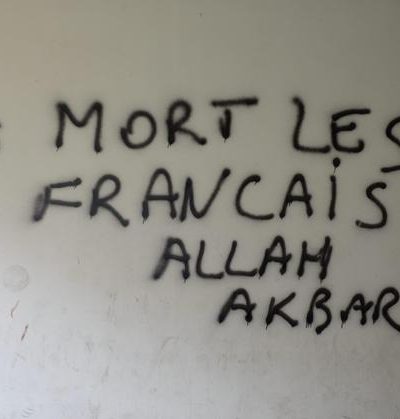 MORT LES
FRANCAIS
ALLAH
AKBAR